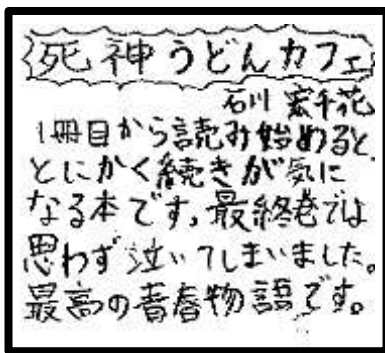 死神うどんカフェ
石川 宏千花
1冊目から読み始めると、
とにかく続きが気に
なる本です。最終巻では
思わず泣いてしまいました。
最高の青春物語です。